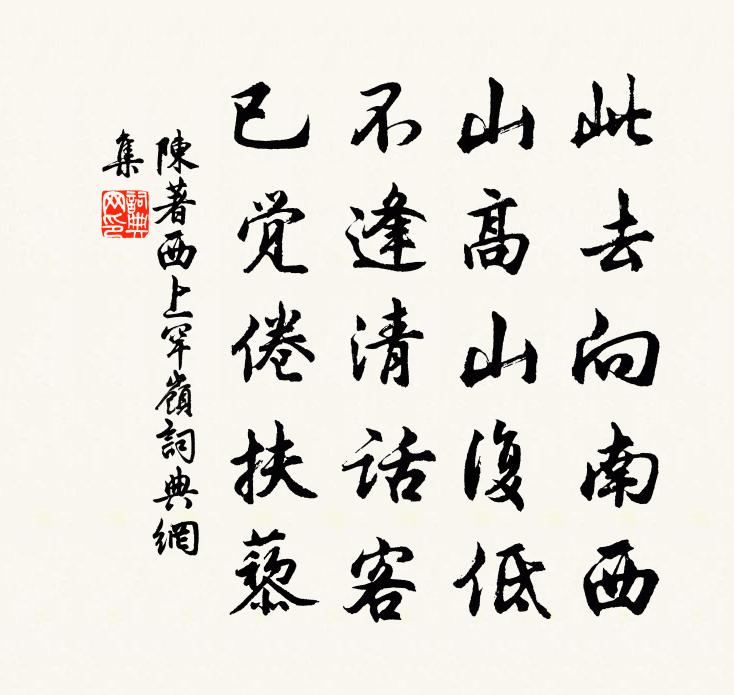 此去向南西
山高山復低
不逢清話客
已觉倦扶藜
陳著西上罕嶺詞典網
集
詞典网印